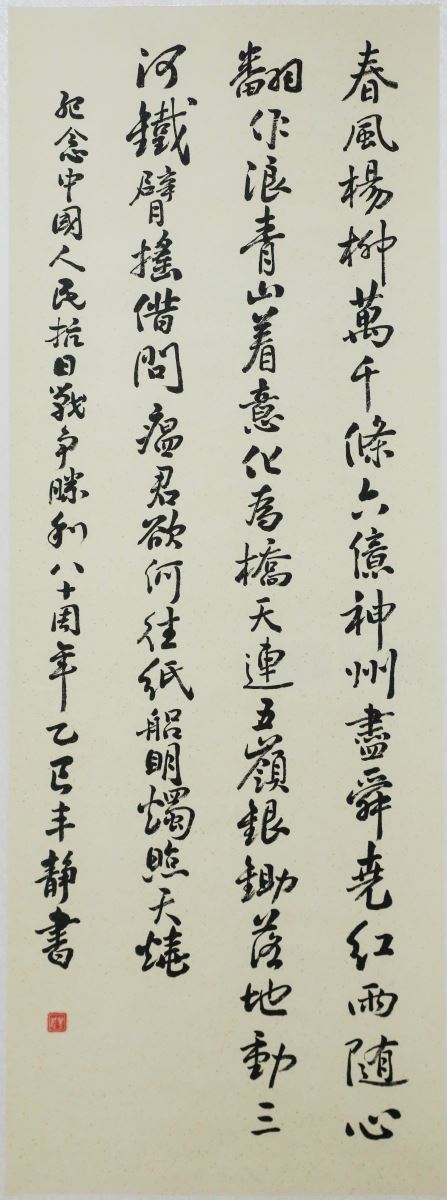 春風楊柳萬千條六億神州盡舜堯紅雨随心
翻作浪青山着意化為橋天連五嶺銀鋤落地動三
河鐵臂搖借問瘟君欲何往紙船明燭照天燒
纪念中國人民抗日戰争勝利八十周年乙巳丰靜書